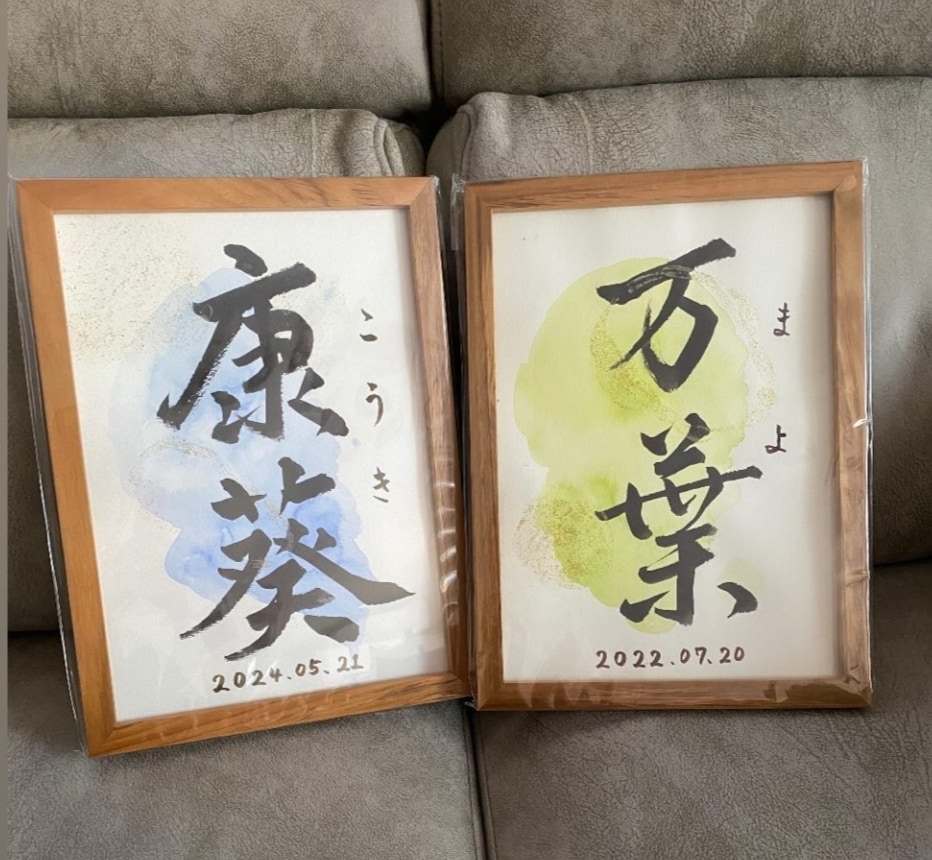 康葵
こうき
2024.05.21
万葉
まよ
2022.07.20